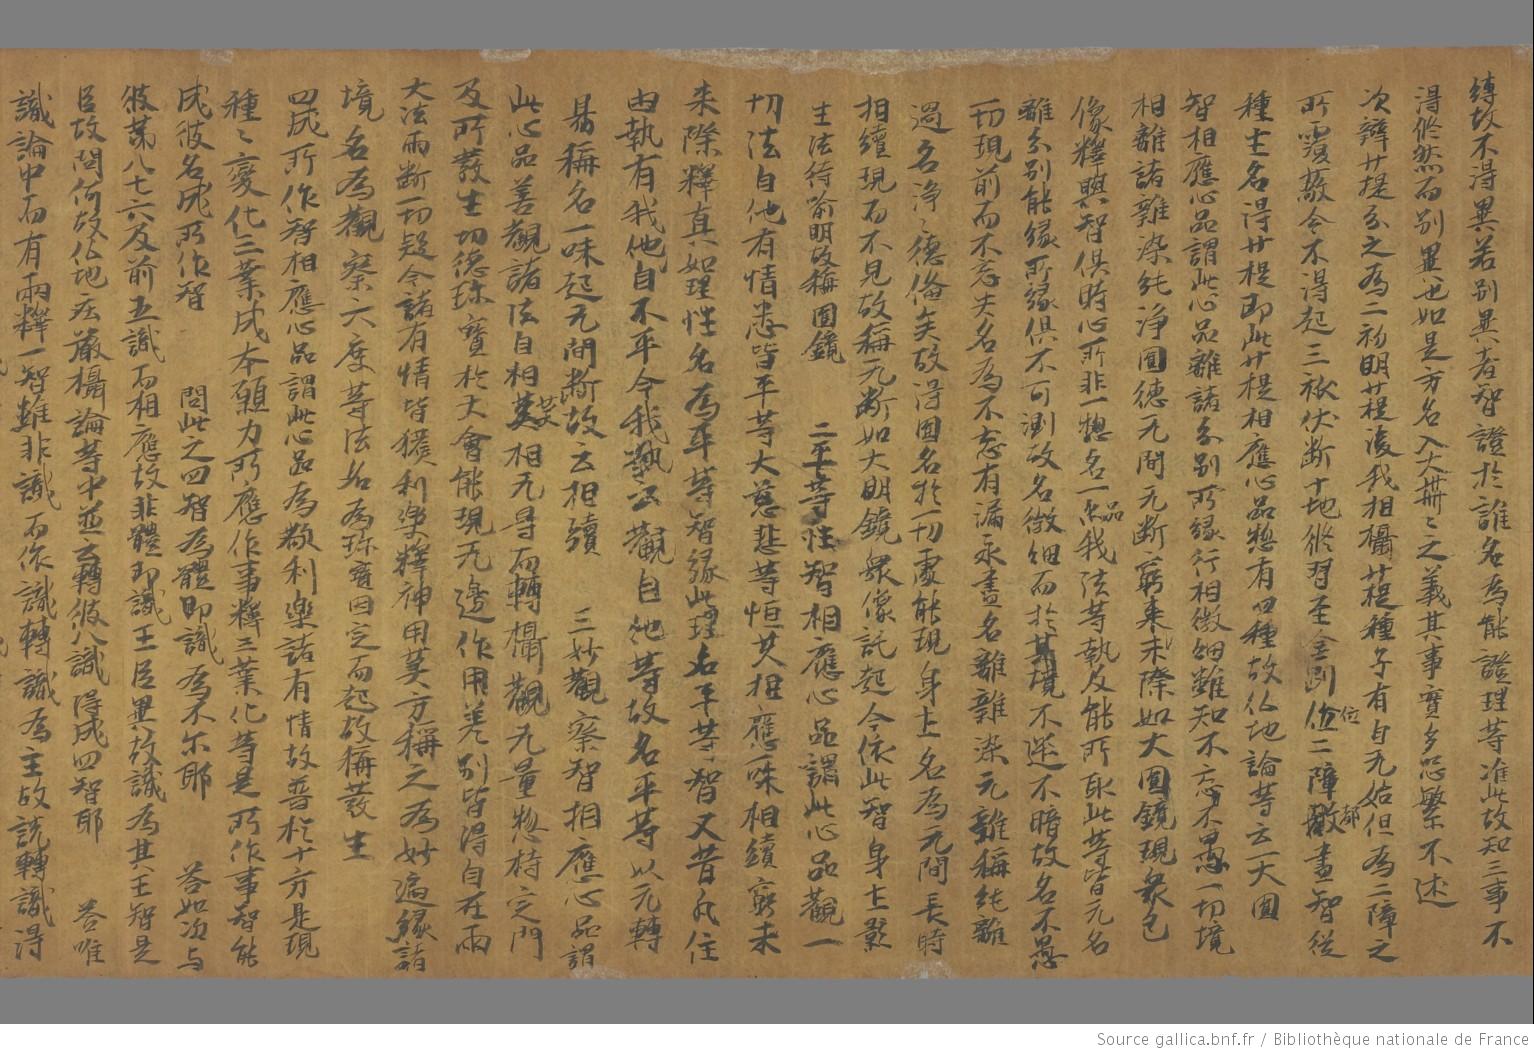 縛故不得異若別異者智證於誰名為能證理等准此故知三事不
得俻然而別異也如是方名入大乘之義其事實多恐繁不述
次辨菩提分之為二初明菩提後我相攝菩提種子有自无始但為二障之
所覆蔽令不得起三祇伏斷十地俻習至金剛位二障都盡智從
種生名得菩提即此菩提相應心品惣有四種故仏地論等云一大圓
智相應心品謂此心品離諸分別所緣行相微細難知不忘不愚一切境
相離諸雜染純淨圓德无間无斷窮未來際如大圓鏡現衆色
像釋與智俱時心所非一惣名一品我法等執及能所取此等皆无名
離分別能緣所緣俱不可測故名微細而於其境不迷不暗故名不愚
一切現前而不忘失名為不忘有漏永盡名離雜染无雜稱純離
過名淨淨德俻矣故得圓名於一切處能現身土名為无間長時
相續現而不見故稱无斷如大明鏡衆像託起今依此智身土影
生法待喻明故稱圓鏡 二平等性智相應心品謂此心品觀一
切法自他有情悉皆平等大慈悲等恒共相應一味相續窮未
來際釋真如理性名為平等智緣此理名平等智又昔凡住
由執有我他自不平今我執亡觀自他等故名平等以无轉
易稱名一味起无間斷故云相續 三妙觀察智相應心品謂
此心品善觀諸法自相共相无㝵而轉攝觀无量惣持定門
及所發生功德珎寶於大會能現无邊作用差別皆得自在雨
大法雨斷一切疑令諸有情皆獲利樂釋神用莫方稱之為妙遍緣諸
境名為觀察六度等法名為珎寶因定而起故稱發生
四成所作智相應心品謂此心品為欲利樂諸有情故普於十方是現
種種變化三業成本願力所應作事釋三業化等是所作事智能
成彼名成所作智 問此之四智為體即識為不尔耶 答如次与
彼第八七六及前五識而相應故非體即識王臣異故識為其王智是
臣故問何故仏地庄嚴攝論等中並云轉彼八識得成四智耶 答唯
識論中而有兩釋一智雖非識而依識轉識為主故説轉識得